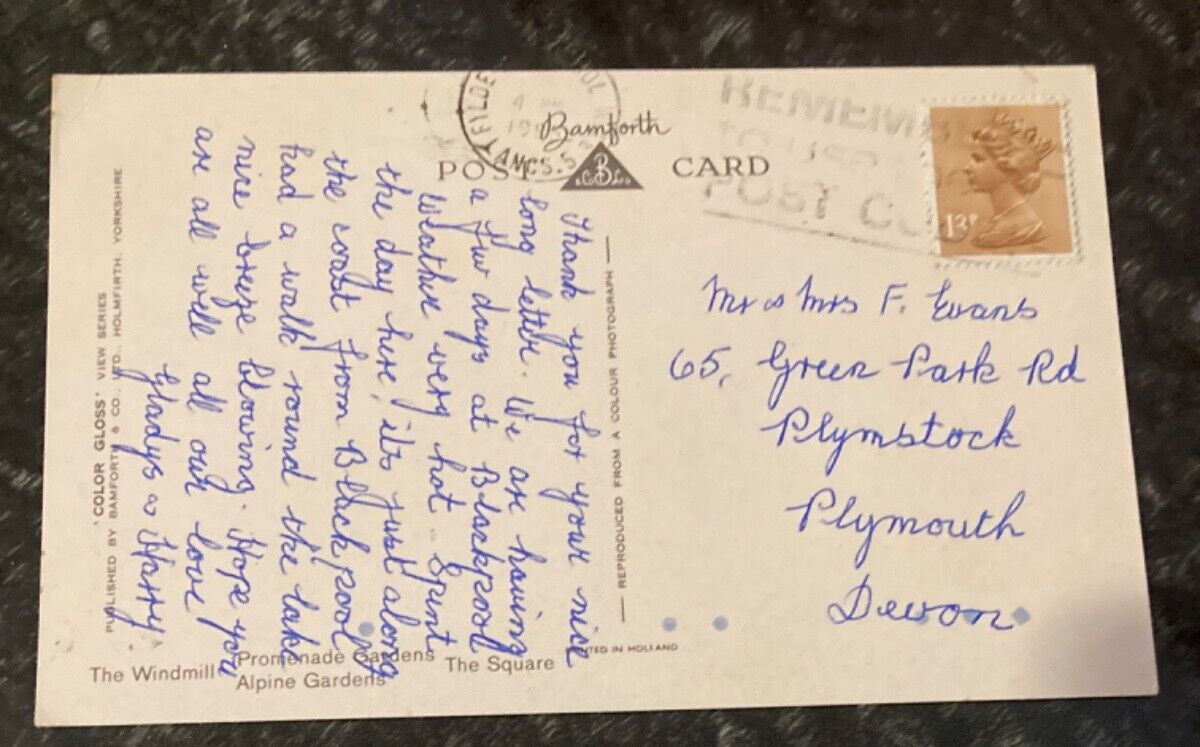 Bamforth
POST CARD
REMEMB
POST CO
FYLDE
AMCS.
4 PM
19
13P
Thank you for your nice
long letter. We are having
a few days at Blackpool
Weather very hot. Spent
the day here, its just along
the coast from Blackpool
had a walk round the lake
nice breeze blowing. Hope you
are all well all our love
Gladys & Harry.
Mr & Mrs F. Evans
65, Green Park Rd
Plymstock
Plymouth
Devon
REPRODUCED FROM A COLOUR PHOTOGRAPH
'COLOR GLOSS' VIEW SERIES
PUBLISHED BY BAMFORTH & CO. LTD., HOLMFIRTH, YORKSHIRE
PRINTED IN HOLLAND
The Windmill
Promenade Gardens
Alpine Gardens
The Square